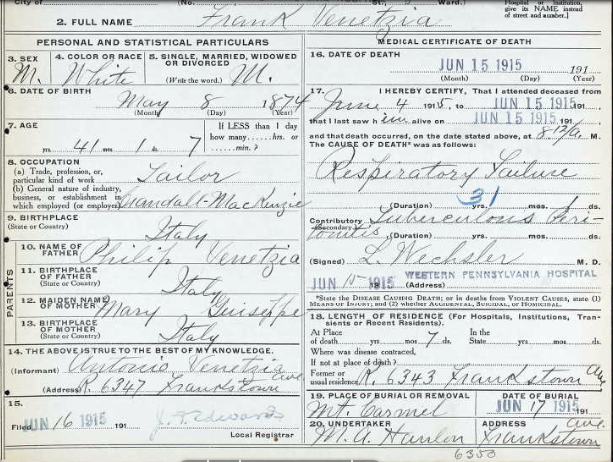 2. FULL NAME Frank Venetzia
give its NAME instead
of street and number.]
PERSONAL AND STATISTICAL PARTICULARS
3. SEX 4. COLOR OR RACE 5. SINGLE, MARRIED, WIDOWED
OR DIVORCED
M. White (Write the word.) M.
6. DATE OF BIRTH
May 8 1874
(Month) (Day) (Year)
7. AGE If LESS than 1 day
how many..... hrs. or
yrs. 41 mos. 1 ds. 7 min.?
8. OCCUPATION
(a) Trade, profession, or,
particular kind of work Tailor
(b) General nature of industry,
business, or establishment in
which employed (or employer) Crandall-MacKenzie
9. BIRTHPLACE
(State or Country) Italy
PARENTS
10. NAME OF
FATHER Philip Venetzia
11. BIRTHPLACE
OF FATHER
(State or Country) Italy
12. MAIDEN NAME
OF MOTHER Mary Guiseppe
13. BIRTHPLACE
OF MOTHER
(State or Country) Italy
14. THE ABOVE IS TRUE TO THE BEST OF MY KNOWLEDGE.
(Informant) Antonio Venetzia
(Address) R. 6347 Frankstown ave
15.
Filed JUN 16 1915 191 J. F. Edwards
Local Registrar
MEDICAL CERTIFICATE OF DEATH
16. DATE OF DEATH
JUN 15 1915 191
(Month) (Day) (Year)
17. I HEREBY CERTIFY, That I attended deceased from
June 4 1915, to JUN 15 1915 191
that I last saw him alive on JUN 15 1915 191
and that death occurred, on the date stated above, at 8 12/a M.
The CAUSE OF DEATH* was as follows:
Respiratory Failure
31
(Duration) yrs. mos. 1 ds.
Contributory Tuberculous Peri
Secondary tonitis (Duration) yrs. mos. ds.
(Signed) L. Wechsler M. D.
JUN 15 1915 191 WESTERN PENNSYLVANIA HOSPITAL
*State the DISEASE CAUSING DEATH; or in deaths from VIOLENT CAUSES, state (1)
MEANS OF INJURY; and (2) whether ACCIDENTAL, SUICIDAL, or HOMICIDAL.
18. LENGTH OF RESIDENCE (For Hospitals, Institutions, Transients
or Recent Residents).
At Place In the
of death yrs. mos. 7 ds. State yrs. mos. ds.
Where was disease contracted,
If not at place of death?
Former or
usual residence R. 6343 Frankstown Ave
19. PLACE OF BURIAL OR REMOVAL DATE OF BURIAL
Mt. Carmel JUN 17 1915 191
20. UNDERTAKER ADDRESS ave.
M. A. Hanlon Frankstown
6350